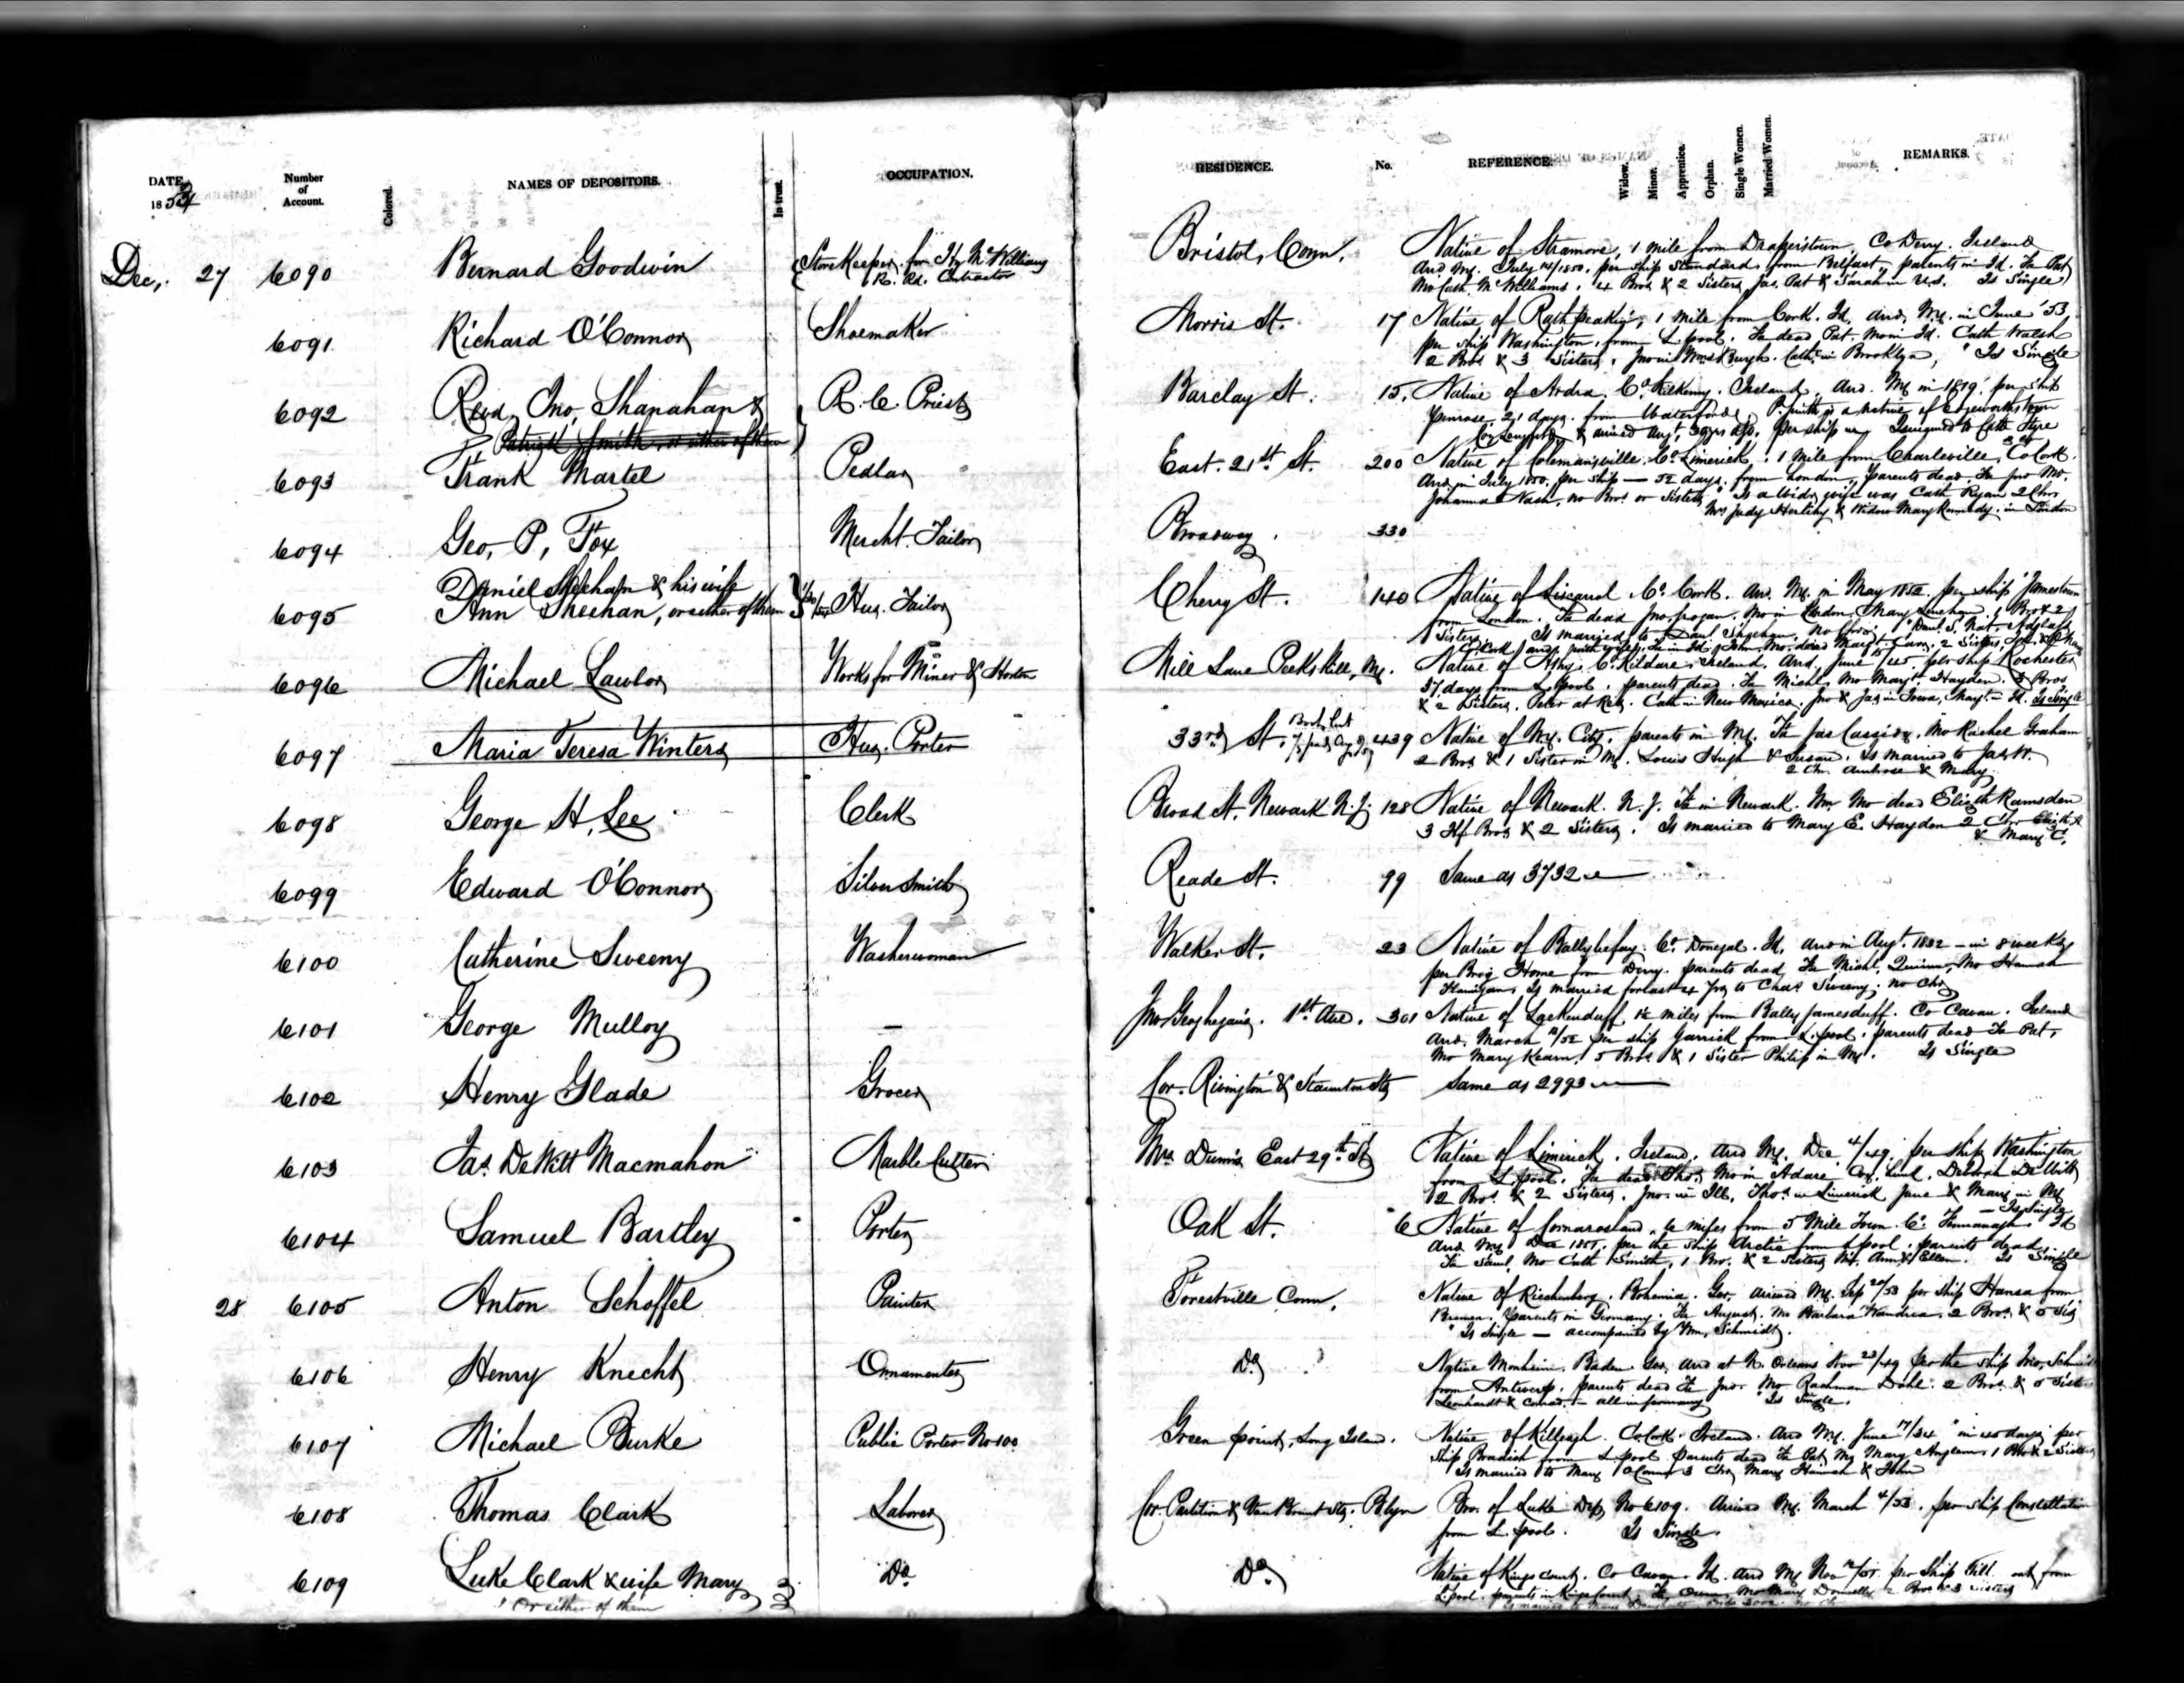 DATE, 1853 Number of Account. Colored. NAMES OF DEPOSITORS. In trust. OCCUPATION. RESIDENCE. No. REFERENCE. Widow. Minor. Apprentice. Orphan. Single Women. Married Women. REMARKS.
Dec, 27 6090 Bernard Goodwin Store Keeper for Hy McWilliams R. Rd. Contractor Bristol, Conn. Native of Stramore, 1 mile from Draperstown, Co Derry. Ireland
Arrd. NY. July 14/1850, per ship Standard, from Belfast, parents in Id. Fa Pat
Mo Cath. McWilliams. 4 Bros & 2 Sisters, Jas. Pat & Sarah in U.S. Is Single
6091 Richard O'Connor Shoemaker Morris St. 17 Native of Rathpeakin, 1 mile from Cork. Id, arrd. NY. in June '53,
per ship Washington, from L.pool. Fa dead Pat. Mo in Id. Cath Walsh
2 Bros & 3 Sisters, Jno in Cath. in Brooklyn, Is Single
6092 Revd. Jno. Shanahan & R. C. Priest Barclay St. 15. Native of Ardra, Co. Kilkenny. Ireland, Arr. NY in 1819, per ship
Patrick Smith, or either of them Penrose, 21 days. from Waterford, P. Smith is a native of Edgeworthstown
Co Longford, & arrived Augt, 30 yrs ago. per ship
6093 Frank Martel Pedlar East. 21st. St. 200 Native of Colemansville, Co. Limerick. 1 mile from Charleville, Co Cork.
Arr. in July 1850. per ship — 52 days, from London, parents dead. Fa Jno Mo.
Johanna Nash, no Bros. or Sisters, Is a widr, wife was Cath Ryan 2 Chn.
Mrs Judy Herlihy & Widow Mary Kennedy. in London
6094 Geo, P, Fox Mercht. Tailor Broadway. 330
6095 Daniel Sheehan & his wife
Ann Sheehan, or either of them Hus. Tailor Cherry St. 140 Native of Liscarrol, Co. Cork. Arr. NY. in May 1852. per ship Jamestown
from London. Fa dead Jno. Mo in London, Mary 1 Bro & 2
Sisters. Is married to Danl. Sheehan, no Chn.
6096 Michael Lawlor Works for Miner & Horton Mill Lane Peekskill, NY. Native of Athy, Co. Kildare, Ireland. Arrd. June per ship Rochester
37 days from L.pool. parents dead. Fa Michl. Mo Margt. Hayden. 3 Bros
& 2 Sisters. Peter at Cath in New Mexico. Jno & Jas in Iowa, Margt. in Id. Is Single
6097 Maria Teresa Winters Hus. Porter 33rd St. 439 Native of N.Y. City. parents in NY. Fa Jas Cassidy. Mo Rachel Graham
2 Bros & 1 Sister in NY. Louis Hugh & Susan. Is married to Jas W.
2 Ch. Ambrose & Mary.
6098 George H. Lee Clerk Broad St. Newark N.J. 128 Native of Newark. N. J. Fa in Newark. Wm Mo dead Elizth Ramsden
3 Hf Bros & 2 Sisters. Is married to Mary E. Haydon 2 Chn Elizth
& Mary C.
6099 Edward O'Connor Silver Smith Reade St. 99 Same as 3732
6100 Catherine Sweeny Washerwoman Walker St. 23 Native of Ballybofey. Co. Donegal. Id, arr in Augt. 1832 – in 8 weeks
per Brig Home from Derry. parents dead, Fa Michl. Quinn, Mo Hannah
Flanigan, Is married for last 4 yrs to Chas. Sweeny, no Chn
6101 George Mulloy — Jno Geoghegan's. 1st. Ave. 301 Native of Lackenduff, 1½ miles from Bally Jamesduff. Co Cavan. Ireland
Arrd. March /52 per ship Garrick from L.pool. parents dead Fa Pat,
Mo Mary Kearn, 5 Bros & 1 Sister Philip in NY. Is Single
6102 Henry Glade Grocer Cor. Rivington & Staunton Sts Same as 2993
6103 Jas. DeWitt Macmahon Marble Cutter Mrs. Dunn's East 29th St Native of Limerick. Ireland, Arrd NY. Dec 4/49. per ship Washington
from L.pool. Fa dead Thos, Mo in Adare Co. Lim. Deborah DeWitt
2 Bros. & 2 Sisters. Jno. in Ill, Thos. in Limerick Jane & Mary in NY
– Is Single
6104 Samuel Bartley Porter Oak St. 6 Native of Cornarosland, 4 miles from 5 Mile Town. Co. Fermanagh. Id
Arrd NY Dec 1851, per the ship Arctic from L.pool. parents dead,
Fa Saml, Mo Cath Smith, 1 Bro. & 2 Sisters NY, Ann & Ellen. Is Single
28 6105 Anton Schoffel Painter Forestville Conn, Native of Richenberg. Bohemia. Ger, arrived NY. Sep 20/53 per ship Hansa from
Bremen. Parents in Germany. Fa August. Mo Barbara Wandrea. 2 Bros. & 5 Sis
Is Single — accompanied by Wm. Schmidt.
6106 Henry Knecht Ornamenter Do. Native Monheim. Baden. Ger, arrd at N. Orleans Nov 23/49 per the ship
from Antwerp, parents dead Fa Jno. Mo Rachman Dahl. 2 Bros. & 5 Sisters
Leonhardt & Conrad, – all in Germany Is Single.
6107 Michael Burke Public Porter No 100 Green point, Long Island. Native of Killeagh. Co Cork. Ireland. Arrd NY. June 17/34 in 40 days per
ship Bowditch from L.pool parents dead Fa Pat, Mo Mary 1 Bro & 2 Sisters
Is married to Mary O'Connor 3 Chn Mary Hannah & John
6108 Thomas Clark Laborer Cor. Partition & Van Brunt Sts. B.lyn Bro. of Luke Dep. No 6109. Arrived NY. March 4/53. per ship Constellation
from L.pool. Is Single.
6109 Luke Clark & wife Mary Do. Do. Native of Kings Court. Co Cavan. Id. Arrd NY Nov per ship out from
Or either of them L.pool. parents in Kings Court. Fa Owen, Mo Mary Donnelly 2 Bros & 3 Sisters